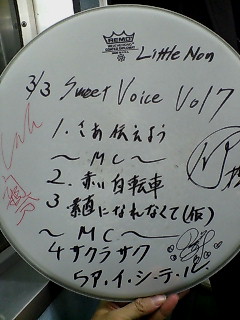 REMO
Little Non
3/3 Sweet Voice Vol 7
1. さあ伝えよう
〜 MC 〜
2. 赤い自転車
3 素直になれなくて(仮)
〜 MC 〜
4 サクラサク
5 ア・イ・シ・テ・ル